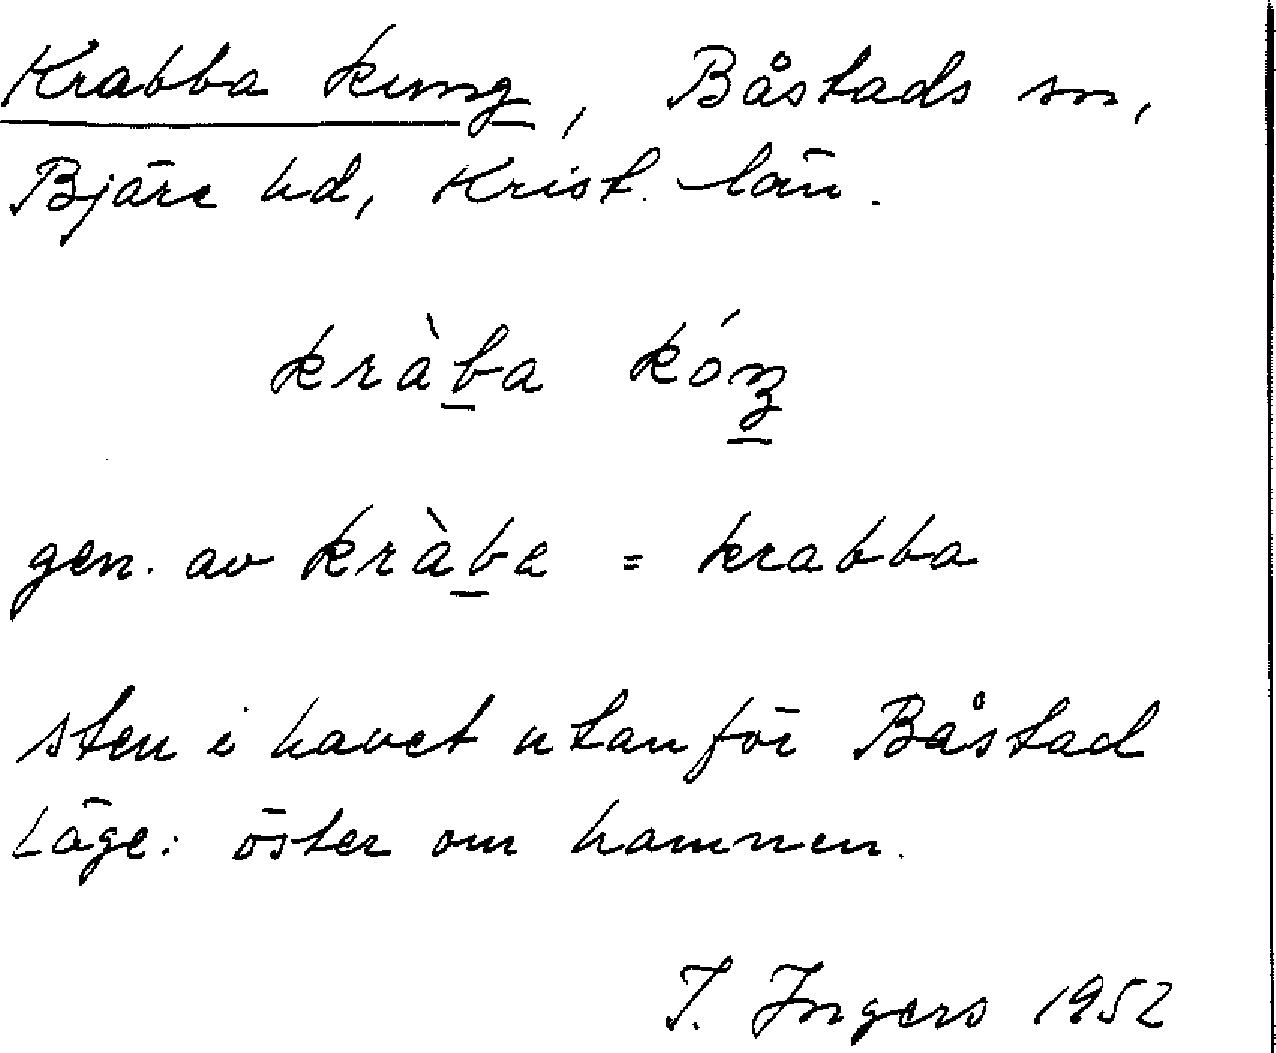 Krabba kung, Båstads sn,
Bjäre hd, Krist. län.
kràb̲a kóŋ̲
gen. av kràb̲a = krabba
sten i havet utanför Båstad
Läge: öster om hamnen.
I. Ingers 1952